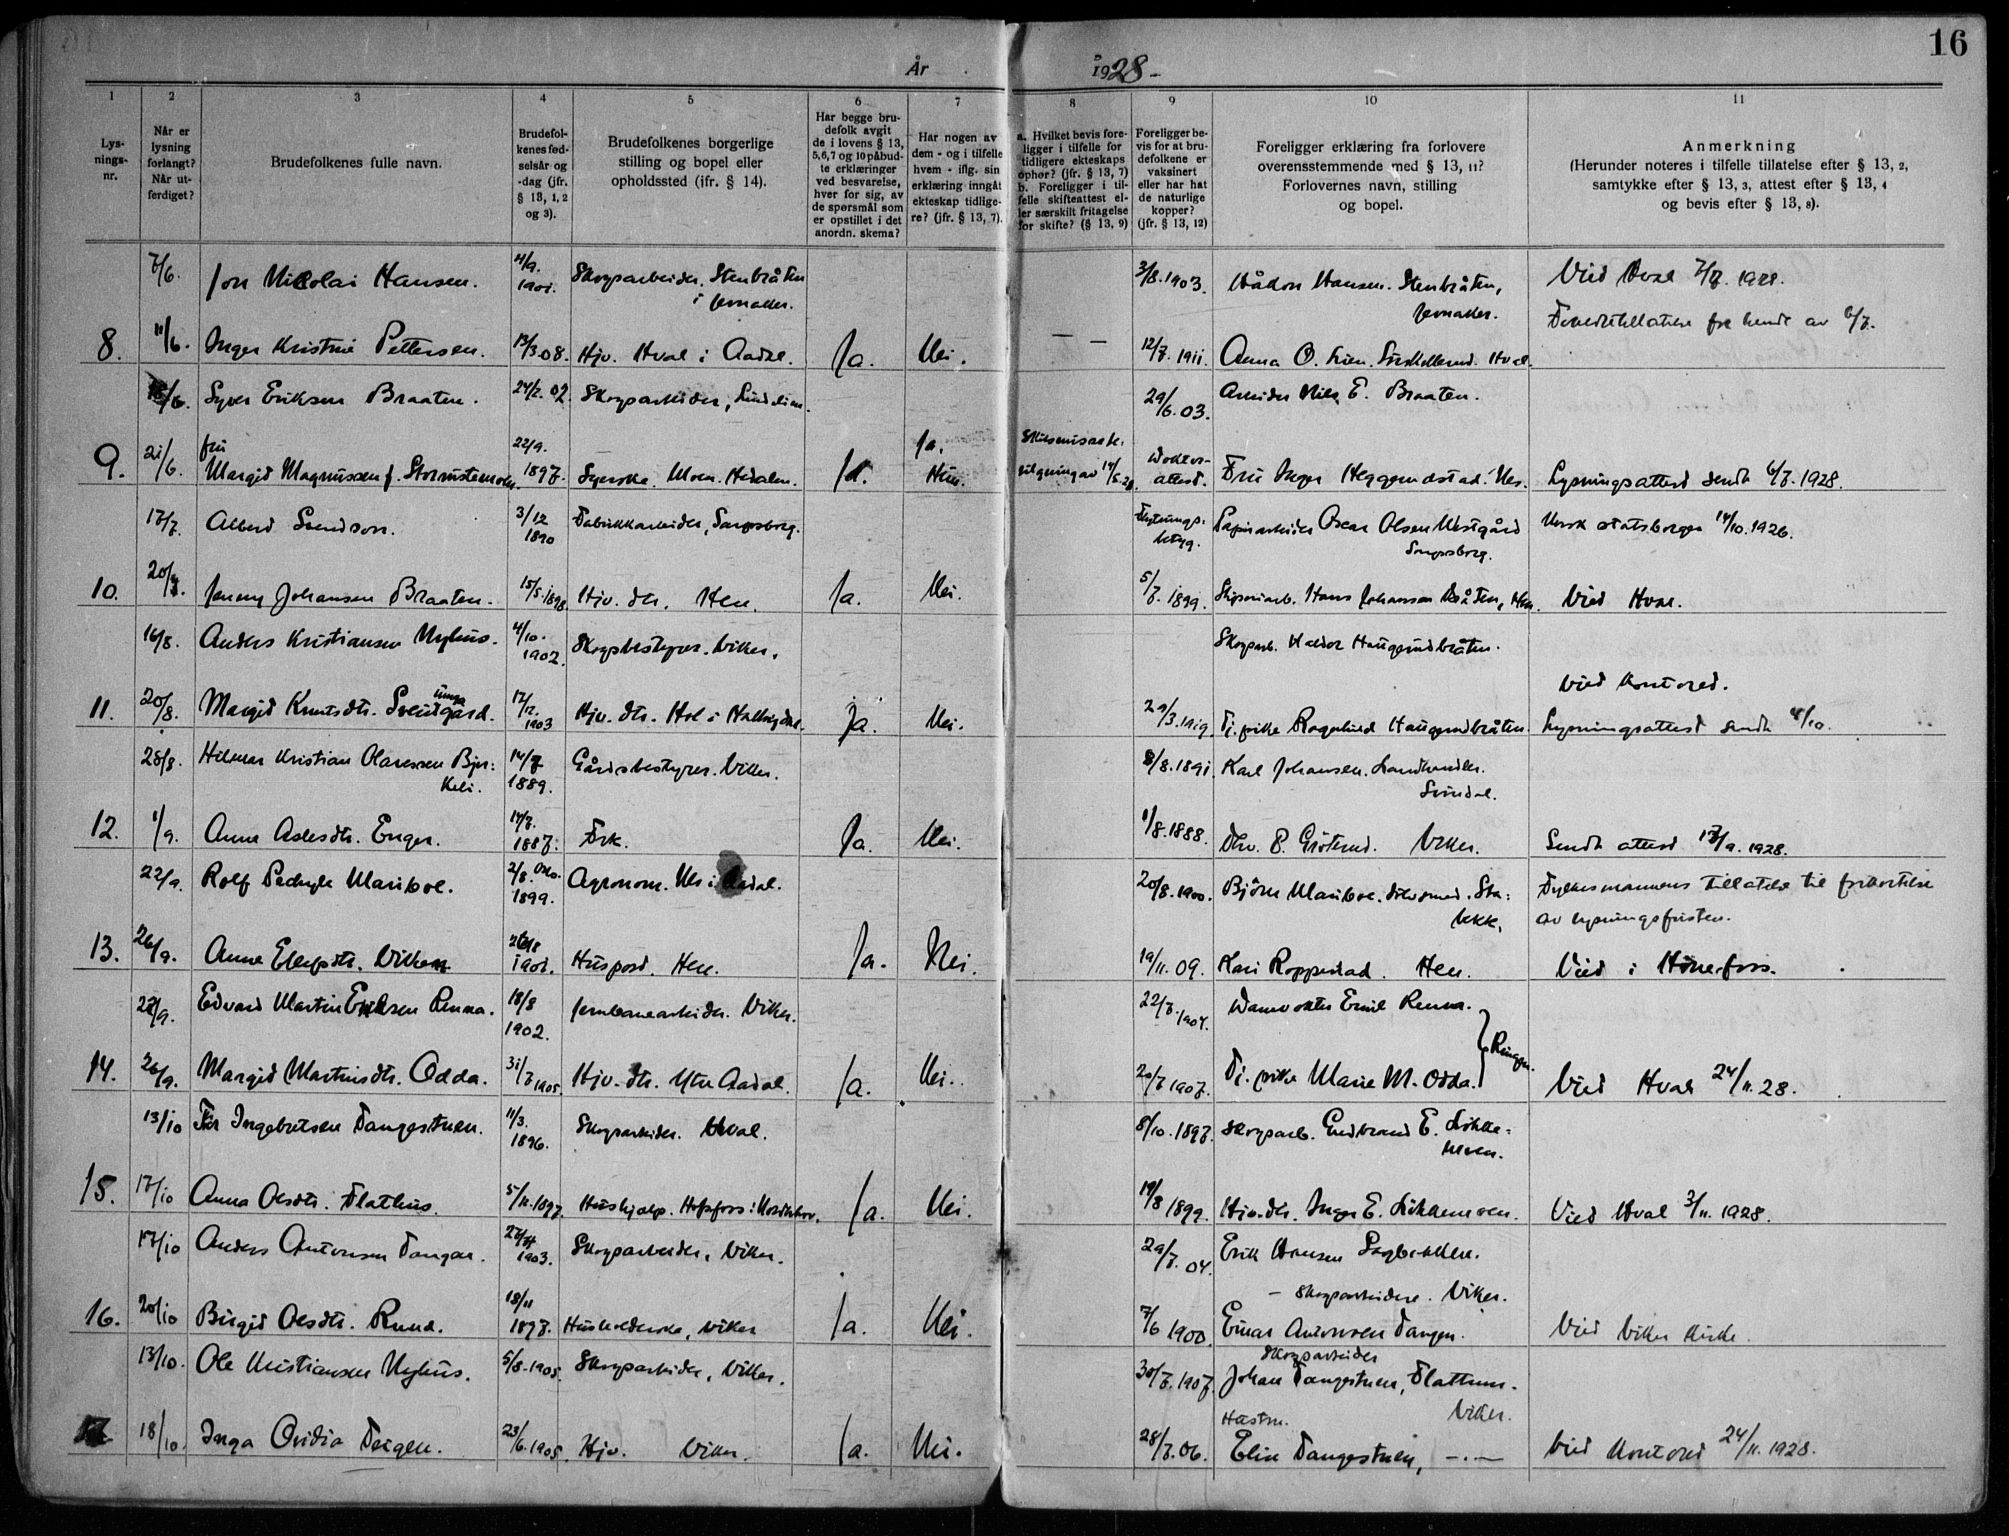 16
År 1928-
1 2 3 4 5 6 7 8 9 10 11
Lys-
nings-
nr.
Når er
lysning
forlangt?
Når ut-
ferdiget?
Brudefolkenes fulle navn.
Brudefol-
kenes fød-
selsår og
-dag (jfr.
§ 13, 1, 2
og 3).
Brudefolkenes borgerlige
stilling og bopel eller
opholdssted (ifr. § 14).
Har begge bru-
defolk avgit
de i lovens § 13,
5,6,7 og 10 påbud-
te erklæringer
ved besvarelse,
hver for sig, av
de spørsmål som
er opstillet i det
anordn. skema?
Har nogen av
dem - og i tilfelle
hvem - iflg. sin
erklæring inngåt
ekteskap tidlige-
re? (jfr. § 13, 7).
a. Hvilket bevis fore-
ligger i tilfelle for
tidligere ekteskaps
ophør? (jfr. § 13, 7)
b. Foreligger i til-
felle skifteattest el-
ler særskilt fritagelse
for skifte? (§ 13, 9)
Foreligger be-
vis for at bru-
defolkene er
vaksinert
eller har hat
de naturlige
kopper?
(jfr. § 13, 12)
Foreligger erklæring fra forlovere
overensstemmende med § 13, 11?
Forlovernes navn, stilling
og bopel.
Anmerkning
(Herunder noteres i tilfelle tillatelse efter § 13, 2,
samtykke efter § 13, 3, attest efter § 13, 4
og bevis efter § 13, 8).
7/6. Jon Nicolai Hansen. 4/9. 1901. Skogsarbeider, Stenbråten i Jevnaker. 3/8.1903. Håkon Hansen. Stenbråten, Jevnaker. Vied Hval 7/7. 1928.
8. 11/6. Inger Kristine Pettersen. 13/3.08. Hjv. Hval i Aadal. Ja. Nei. — — 12/7. 1911. Anna O. Lien. Hval.
18/6. Syver Eriksen Braaten. 24/2. 02. Skogsarbeider, 29/6.03. Arbeider Nils E. Braaten.
9. 21/6. fru Margid Magnussen f. 22/9. 1897. Syerske. Moen. Hedalen. Ja. Ja. Hun. Doktor-attest. Fru Inger Heggenstad. Nes. Lysningsattest sendt 6/7. 1928.
17/7. Albert Svendson. 3/12 1890 Fabrikkarbeider, Sarpsborg. Papirarbeider Oscar Olsen Westgård Sarpsborg. Norsk statsborger 14/10.1926.
10. 20/7. Jenny Johansen Braaten. 15/5.1898. Hjv. dtr. Hen. Ja. Nei. 5/7. 1899. Sliperiarb. Hans Johansen Bråten, Hen. Vied Hval.
16/8. Anders Kristiansen Nyhus. 4/10. 1902. Skogsbestyrer. Viker. Skogsarb. Haldor Haugerudbråten.
Vied kontoret.
11. 20/8. Margid Knutsdtr. 17/12. 1903 Hjv. dtr. Hol i Hallingdal. Ja. Nei. 29/3.1919. Tj. pike Ragnhild Haugerudbråten. Lysningsattest sendt 4/10.
28/8. Hilmar Kristian Olavessen Bjer-keli. 14/7 1889. Gårdsbestyrer. Viker. 8/8.1891. Karl Johansen. Landhandler. Sørudal.
12. 1/9. Anne Aslesdtr. Enger. 14/7. 1887. Frk. Ja. Nei. 1/8.1888. Viker. Sendt attest 17/9. 1928.
22/9. Rolf Mariboe. 2/8. Oslo. 1899. Agronom. Nes i Aadal. 20/8.1900. Bjørn Mariboe. Sta-bekk. Fylkesmannens tillatelse til forkortelse av lysningsfristen.
13. 26/9. Anne Elefsdtr. Viken 26/8 1901. Huspost. Hen. Ja. Nei. 19/11. 09. Kari Roppestad. Hen. Vied i Hønefoss.
22/9. Edvard Martin Eriksen Renna. 18/8 1902. Jernbanearbeider. Viker. 22/7.1904. Damvokter Emil Renna.
14. 26/9. Margid Martinsdtr. Odda. 31/7 1905. Hjv. dtr. Ytre Aadal. Ja. Nei. 20/7 1907. Tj. pike Marie M. Odda. Vied Hval 24/11.28.
13/10 Ingebretsen Tangestuen. 11/3. 1896. Skogsarbeider. Hval. 8/10.1897. Skogsarb. Gudbrand E.
15. 17/10 Anna Olsdtr. Flathus. 5/11.1897. Hushjælp. Hofsfoss i Norderhov. Ja. Nei. 19/8 1899. Hjv. dtr. Inger E. Vied Hval 3/11. 1928.
17/10 Anders Antonsen Tangen. 1903. Skogsarbeider, Viker. 29/7. 04. Erik Hansen
— Skogsarbeidere. Viker.
16. 20/10 Birgit Olsdtr. Rund. 18/11 1897. Husholderske, Viker Ja. Nei. 7/6 1900. Einar Antonsen Tangen. Vied Viker kirke.
13/10. Ole Kristiansen Nyhus. 5/8.1905. Skogsarbeider, Viker. 30/7.1907. Skogsarbeider Johan Tangestuen, Flattum. Viker.
17 18/10. Inga Ovidia Teigen. 23/6.1905. Hjv. Viker. Ja. Nei. 28/7.06. Hustru. Elise Tangestuen, —.— Vied kontoret 24/11.1928.